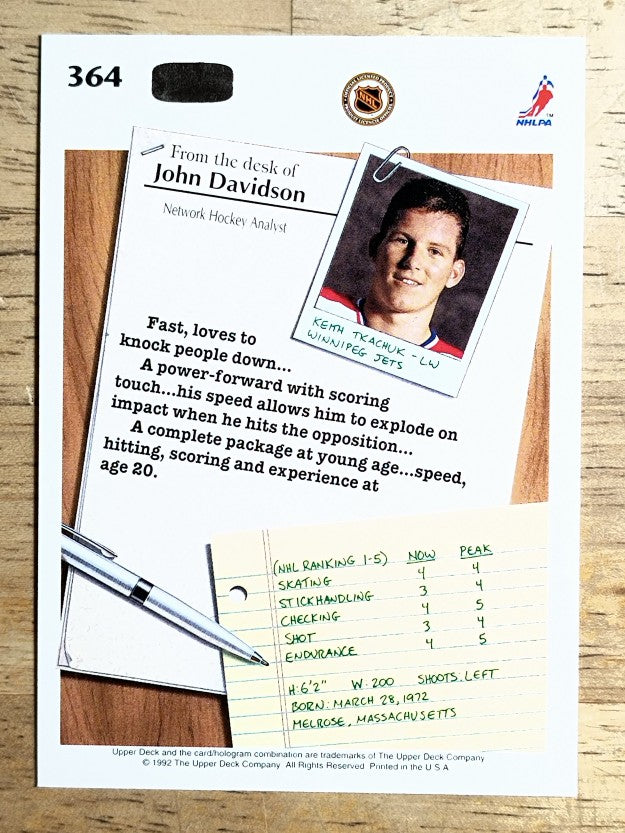 364
OFFICIAL LICENSED PRODUCT
NHL
NHLPA
TM
From the desk of
John Davidson
Network Hockey Analyst
KEITH TKACHUK - LW
WINNIPEG JETS
Fast, loves to
knock people down...
A power-forward with scoring
touch...his speed allows him to explode on
impact when he hits the opposition...
A complete package at young age...speed,
hitting, scoring and experience at
age 20.
(NHL RANKING 1-5) NOW PEAK
SKATING 4 4
STICKHANDLING 3 4
CHECKING 4 5
SHOT 3 4
ENDURANCE 4 5
H: 6'2" W: 200 SHOOTS: LEFT
BORN: MARCH 28, 1972
MELROSE, MASSACHUSETTS
Upper Deck and the card/hologram combination are trademarks of The Upper Deck Company
© 1992 The Upper Deck Company All Rights Reserved Printed in the U S A